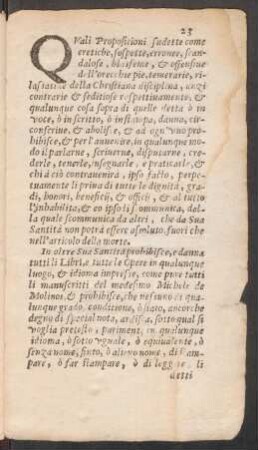 25
QVali Proposicioni sudette come
eretiche, sospette, erronee, scan-
dalose, blasfeme, & offensiue
dell'orecchie pie, temerarie, ri-
lassatiue della Christiana disciplina, anzi
contrarie & seditiose respettiuamente, &
qualunque cosa sopra di quelle detta ò in
voce, ò in scritto, ò in stampa, danna, cir-
conscriue, & abolisce, & ad ogn'vno pro-
hibisce, & per l'auuenire, in qualunque mo-
do il parlarne, scriuerne, disputarne, cre-
derle, tenerle, insegnarle, e praticarle, & 
chi à ciò contrauenirà, ipso facto, perpe-
tuamente li priua di tutte le dignità, gra-
di, honori, beneficij, & officij, & al tutto
l'inhabilita, & eo ipso li scommunica, del-
la quale scommunica da altri, che da Sua
Santità non potrà essere assoluto, fuori che
nell'articolo della morte.
In oltre Sua Santità prohibisce, e danna
tutti li Libri, e tutte le Opere in qualunque
luogo, & idioma impresse, come pure tutti
li manuscritti del medesimo Michele de
Molinos, & prohibisce, che nessuno di qua-
lunque grado, conditione, ò stato, ancorche
degno di special nota, ardisca, sotto qual si
voglia pretesto, pariment, in qualunque
idioma, ò sotto vguale, ò equiualente, ò
senza nome, finto, ò altrvo nome, di stam-
pare, ò far stampare, ò di leggere, li
detti